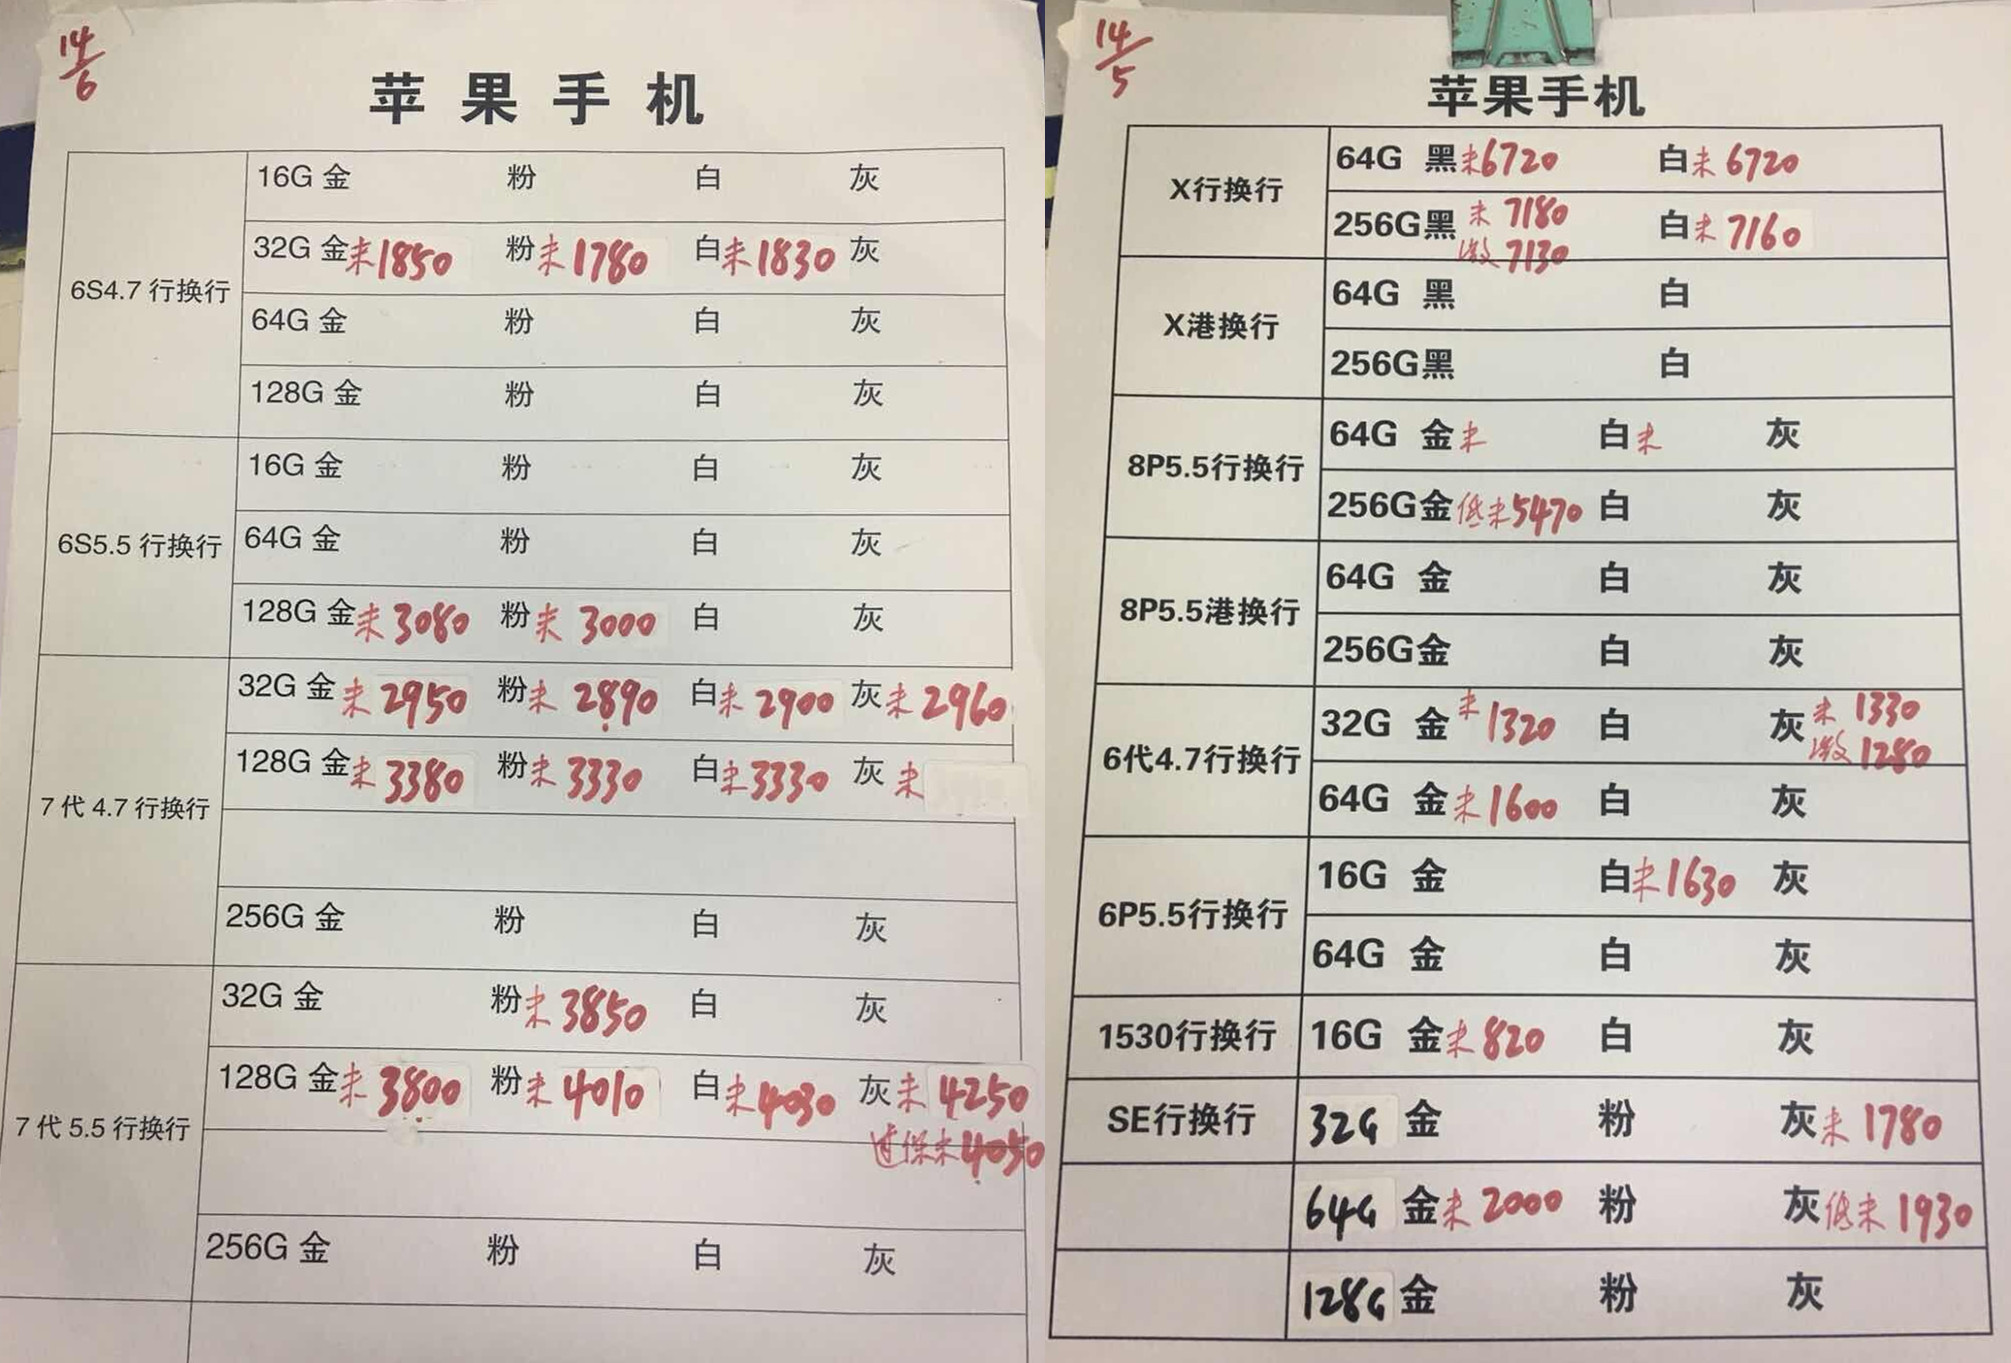 14/6
苹果手机
6S4.7行换行
16G 金 粉 白 灰
32G 金未1850 粉未1780 白未1830 灰
64G 金 粉 白 灰
128G 金 粉 白 灰
6S5.5行换行
16G 金 粉 白 灰
64G 金 粉 白 灰
128G 金未3080 粉未3000 白 灰
7代4.7行换行
32G 金未2950 粉未2890 白未2900 灰未2960
128G 金未3380 粉未3330 白未3330 灰未
256G 金 粉 白 灰
7代5.5行换行
32G 金 粉未3850 白 灰
128G 金未3800 粉未4010 白未4030 灰未4250
过保未4050
256G 金 粉 白 灰
14/5
苹果手机
X行换行
64G 黑未6720 白未6720
256G黑未7180 白未7160
激7130
X港换行
64G 黑 白
256G黑 白
8P5.5行换行
64G 金未 白未 灰
256G金低未5470 白 灰
8P5.5港换行
64G 金 白 灰
256G金 白 灰
6代4.7行换行
32G 金未1320 白 灰未1330
激1280
64G 金未1600 白 灰
6P5.5行换行
16G 金 白未1630 灰
64G 金 白 灰
1530行换行
16G 金未820 白 灰
SE行换行
32G 金 粉 灰未1780
64G 金未2000 粉 灰低未1930
128G 金 粉 灰